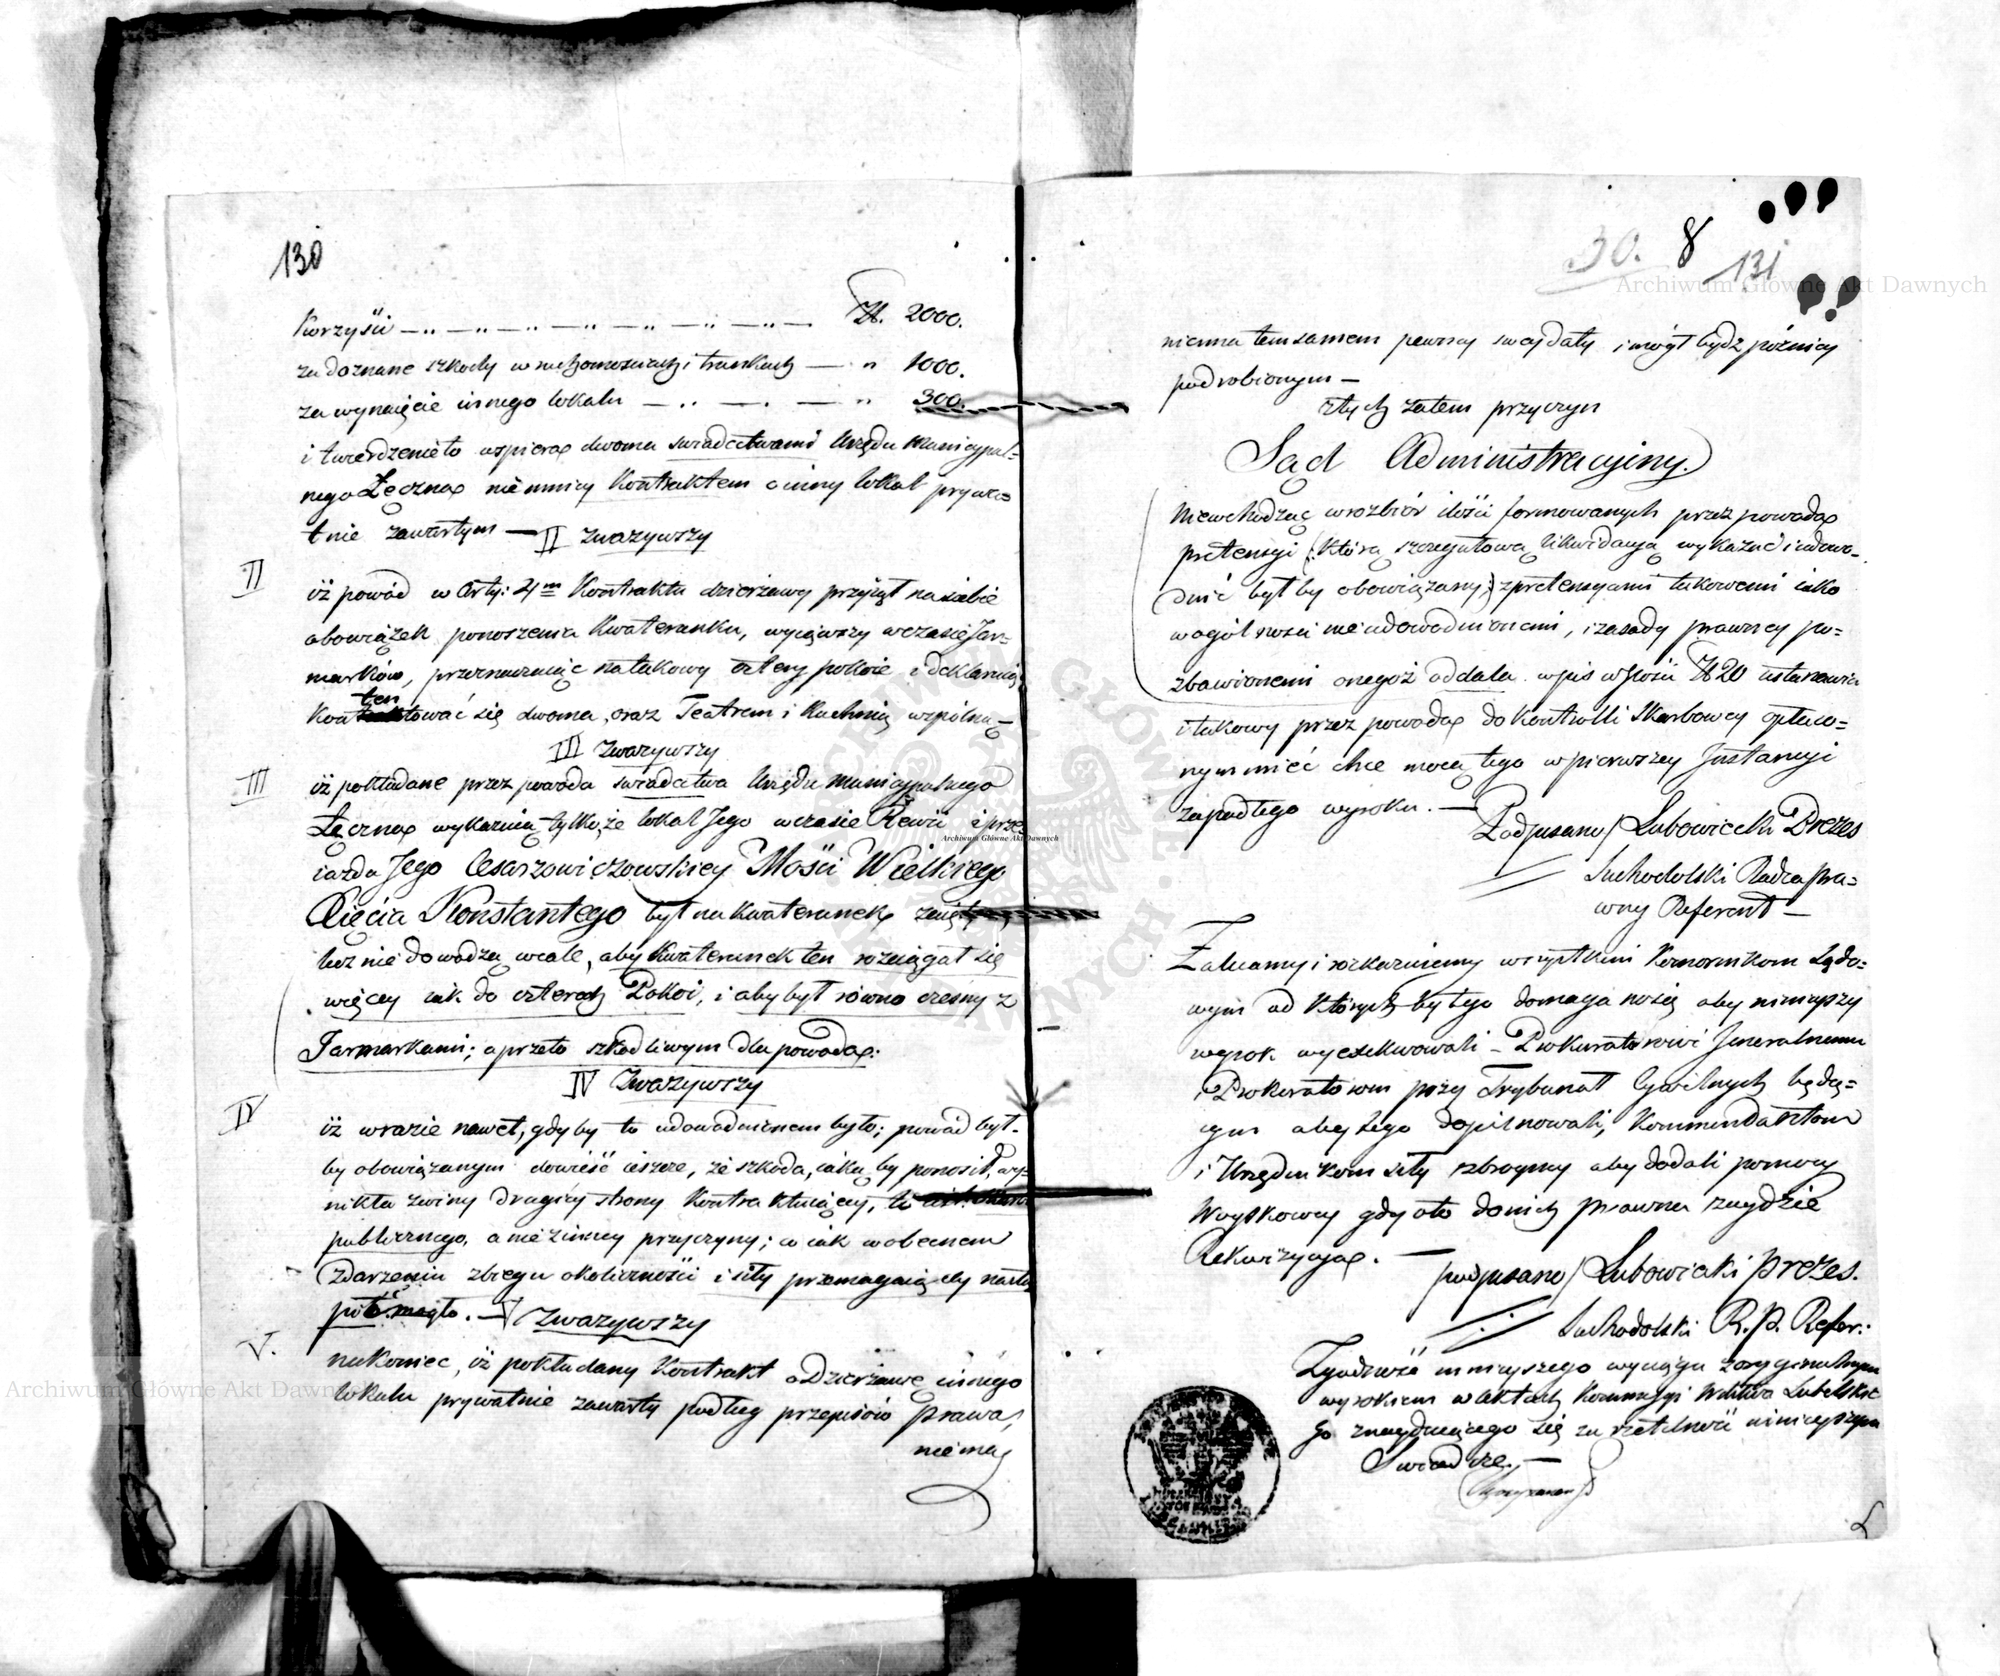 130
Korzyści — „ — „ — „ — „ — „ — Zł. 2000.
za doznane szkody w ruchomościach i trunkach — „ 1000.
za wynaięcie innego lokalu — „ — . — „ 300.
i twierdzenie to wspieraꝭ dwoma świadectwami Urzędu Municypal=
nego Łęcznaꝭ niemniey Kontraktem o inny lokal prywa=
tnie zawartym — II Zważywszy
II
iż powód w Arty: 4m Kontraktu dzierżawy przyiął na siebie
obowiązek ponoszenia Kwaterunku, wyiąwszy w czasie Jar=
marków, przeznaczaiąc na takowy cztery pokoie i deklaruiąc
ten
Kontentować się dwoma, oraz Teatrem i Kuchnią wspólną —
III Zważywszy
III
iż pokładane przez powoda świadectwa Urzędu Municypalnego
Łęcznaꝭ wykazuią tylko, że lokal Jego w czasie Rewii i prze
iazdu Jego Cesarzowiczowskiey Mości Wielkiego
Xięcia Konstantego był na kwaterunek zaięty
lecz nie dowodzą wcale, aby Kwaterunek ten rozciągał się
więcey iak do czterech Pokoi, i aby był równo czesny z
Jarmarkami; a przeto szkodliwym dla powodaꝭ.
IV Zważywszy
IV
iż w razie nawet, gdyby to udowodnionem było; powód był=
by obowiązanym dowieść ieszcze, że szkoda, iaką by ponosił, wy=
nikła z winy drugiey strony Kontraktuiącey, to iest
publicznego, a nie z inney przyczyny; a iak w obecnem
Zdarzeniu zbiegu okoliczności i siły przemagaiącey nastą
pić mogło. — V Zważywszy
V.
nakoniec, iż pokładany Kontrakt o Dzierżawę innego
lokalu prywatnie zawarty podług przepisów Prawa,
niema
30. 8 131
niema temsamem pewney swey daty i mógł bydź późniey
podrobionym —
z tych zatem przyczyn
Sąd Administracyiny.
Niewchodząc w rozbiór ilości formowanych przez powodaꝭ
pretensyi (: którą szczegułową likwidacyą wykazać i udowo=
dnić był by obowiązany :) z pretensyami takowemi iako
w ogólności nieudowodnionemi, i zasady prawney po=
zbawionemi onegoż oddala wpis w ilości Zł 20 ustanawia
i takowy przez powodaꝭ do Kontrolli Skarbowey opłaco=
nym mieć chce mocą tego w pierwszey Instancyi
zapadłego wyroku. —
Podpisano/ Lubowiecki Prezes
// Suchodolski Radca Pra=
wny Referent —
Zalecamy i rozkazuiemy wszystkim Komornikom Sądo=
wym od których by tego domagano się aby ninieyszy
wyrok wyexekwowali — Prokuratorowi Jeneralnemu
i Prokuratorom przy Trybunał Cywilnych będą=
cym aby tego dopilnowali, Kommendantom
i Urzędnikom siły zbroyney aby dodali pomocy
Woyskowey gdy oto do nich prawna zaydzie
Rekwizycyaꝭ. —
podpisano/ Lubowiecki Prezes.
// Suchodolski R. P. Refer:
Zgodność ninieyszego wyciągu z oryginalnym
wyrokiem w aktach Kommissyi Wdztwa Lubelskie
go znayduiącego się za rzetelność ninieyszym
Świadczę. —
Archiwum Główne Akt Dawnych
Archiwum Główne Akt Dawnych
Archiwum Główne Akt Dawnych